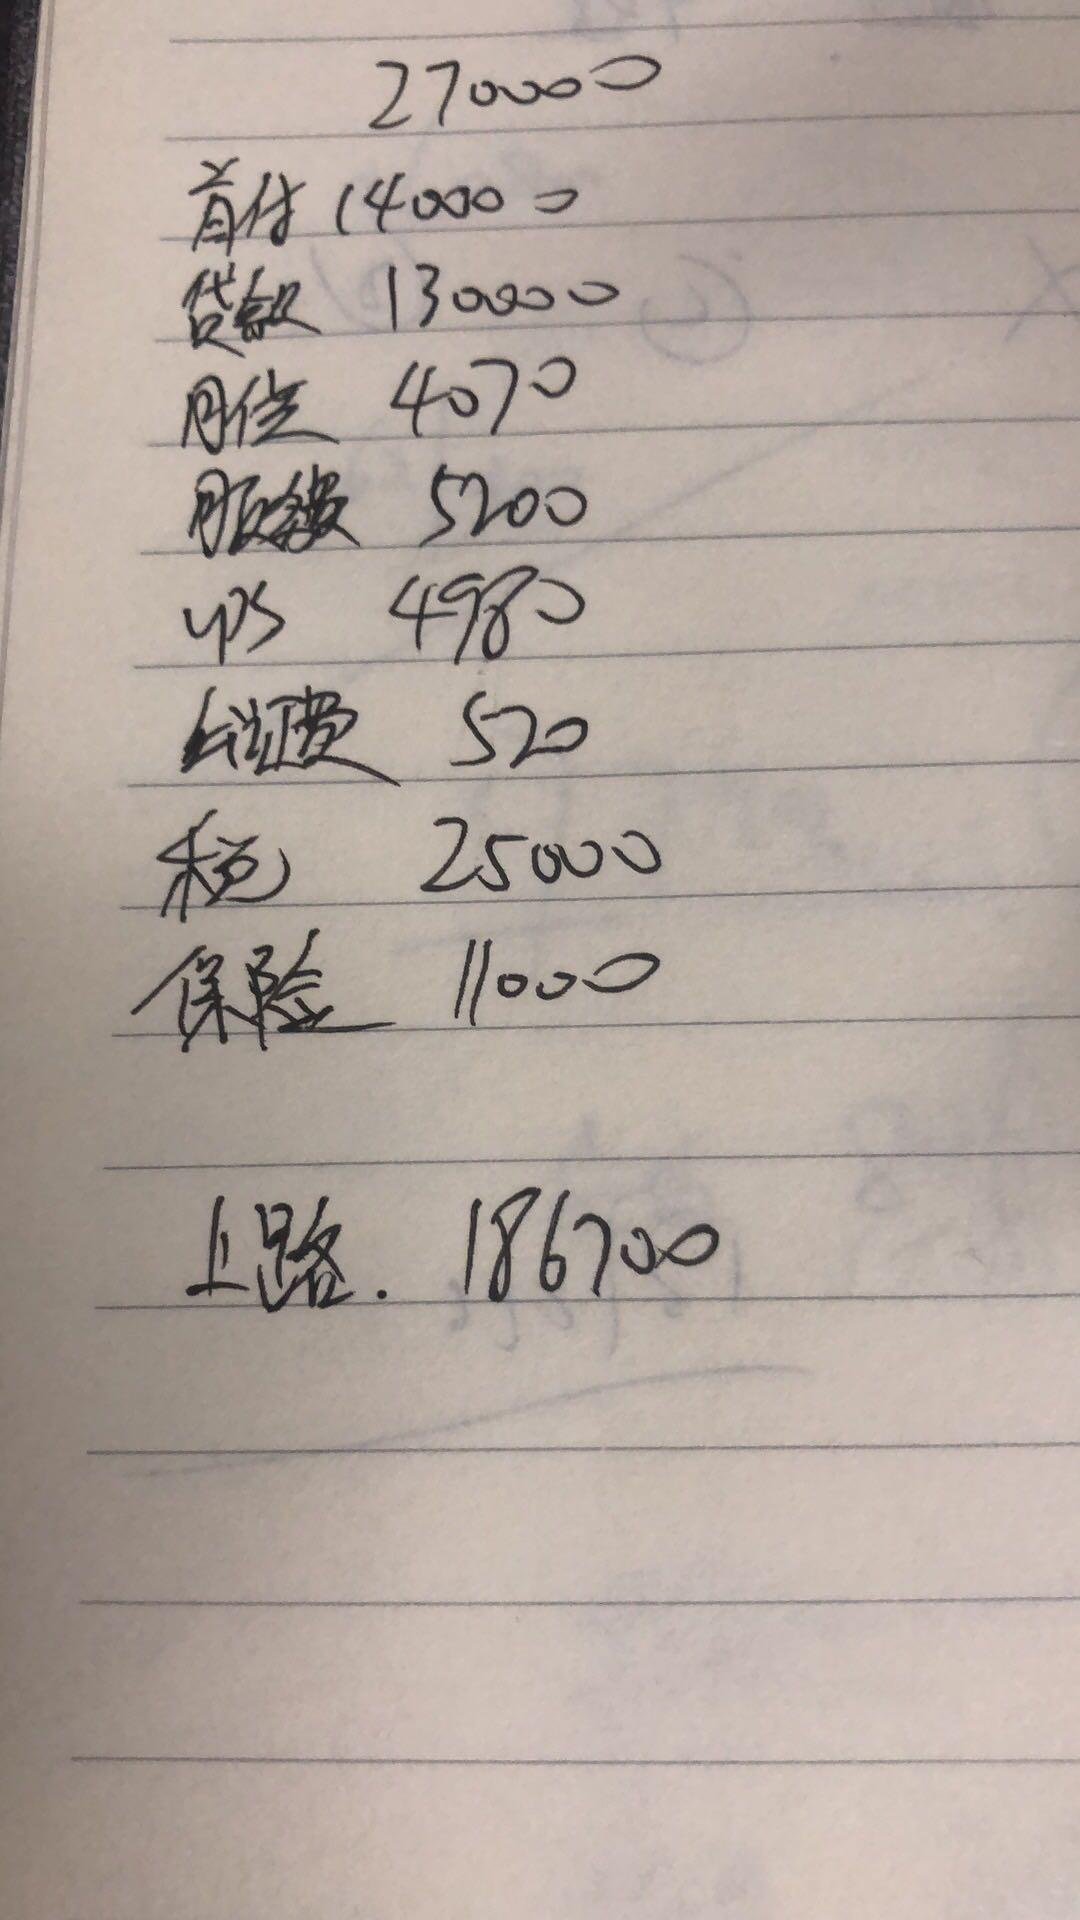 270000
首付 140000
贷款 130000
月供 4070
服务费 5200
ups 4980
公证费 520
税 25000
保险 11000
上路. 186700